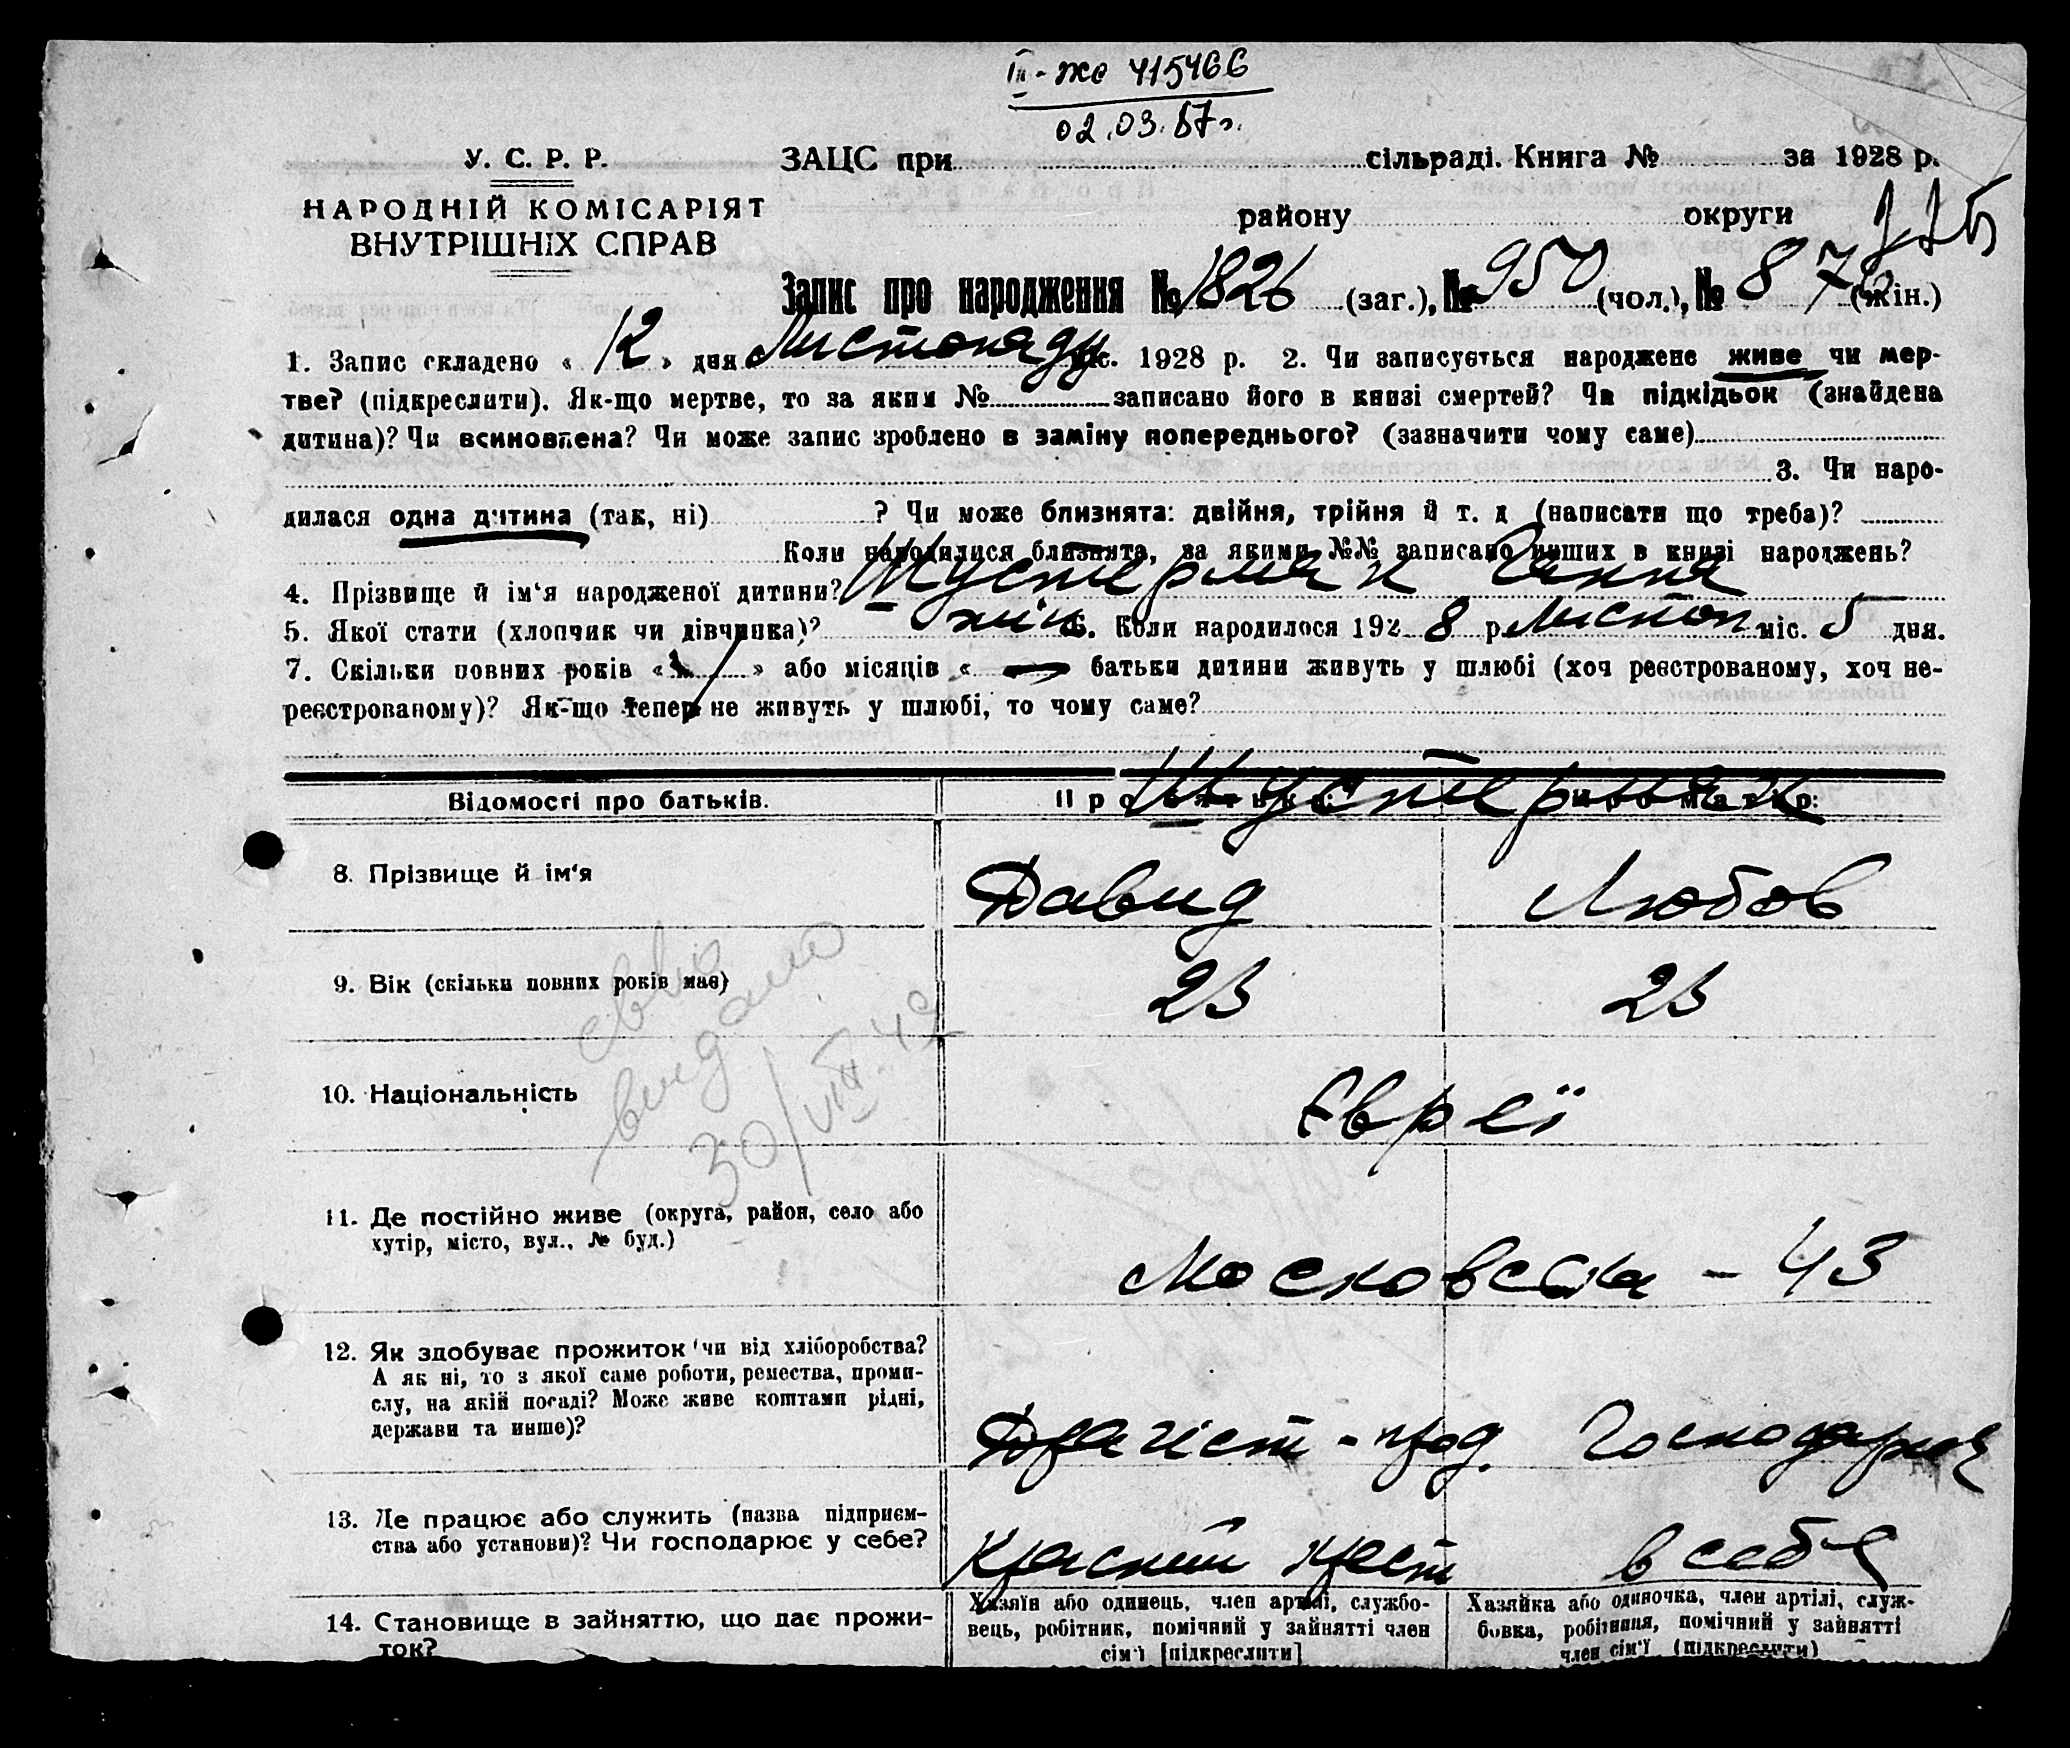 ІІІ-ЖС 415466
02.03.57г.
У. С. Р. Р.
ЗАЦС при сільраді. Книга № за 1928 р.
НАРОДНІЙ КОМІСАРІЯТ
ВНУТРІШНІХ СПРАВ
району округи
Запис про народження № 1826 (заг.), № 950 (чол.), № 876 (жін.)
1. Запис складено « 12 » дня Листопаду міс. 1928 р. 2. Чи записується народжене живе чи мер-
тве? (підкреслити). Як-що мертве, то за яким № записано його в книзі смертей? Чи підкідьок (знайдена
дитина)? Чи всиновлена? Чи може запис зроблено в заміну попереднього? (зазначити чому саме)
3. Чи наро-
дилася одна дитина (так, ні) ? Чи може близнята: двійня, трійня й т. д (написати що треба)?
Коли народилися близнята, за якими №№ записано инших в книзі народжень?
4. Прізвище й ім‘я народженої дитини? Шустерман Ганна
5. Якої стати (хлопчик чи дівчинка)? жін 6. Коли народилося 1928 р. Листоп міс. 5 дня.
7. Скільки повних років « » або місяців « — батьки дитини живуть у шлюбі (хоч реєстрованому, хоч не-
реєстрованому)? Як-що тепер не живуть у шлюбі, то чому саме?
Шустерман
Відомості про батьків. Про батька: Про матір:
8. Прізвище й ім‘я Давид Любов
9. Вік (скільки повних років має) 23 23
видано
30/VIII-49
10. Національність Євреї
11. Де постійно живе (округа, район, село або
хутір, місто, вул., № буд.)
Московська - 43
12. Як здобуває прожиток чи від хліборобства?
А як ні, то з якої саме роботи, ремества, проми-
слу, на якій посаді? Може живе коштами рідні,
держави та инше)?
прод. Господарює
13. Де працює або служить (назва підприєм-
ства або установи)? Чи господарює у себе?
Красний крест в себе
14. Становище в зайняттю, що дає прожи-
ток?
Хазяїн або одинець, член артілі, службо-
вець, робітник, помічний у зайнятті член
сім‘ї [підкреслити]
Хазяйка або одиночка, член артілі, служ-
бовка, робітниця, помічний у зайнятті
член сім‘ї (підкреслити)